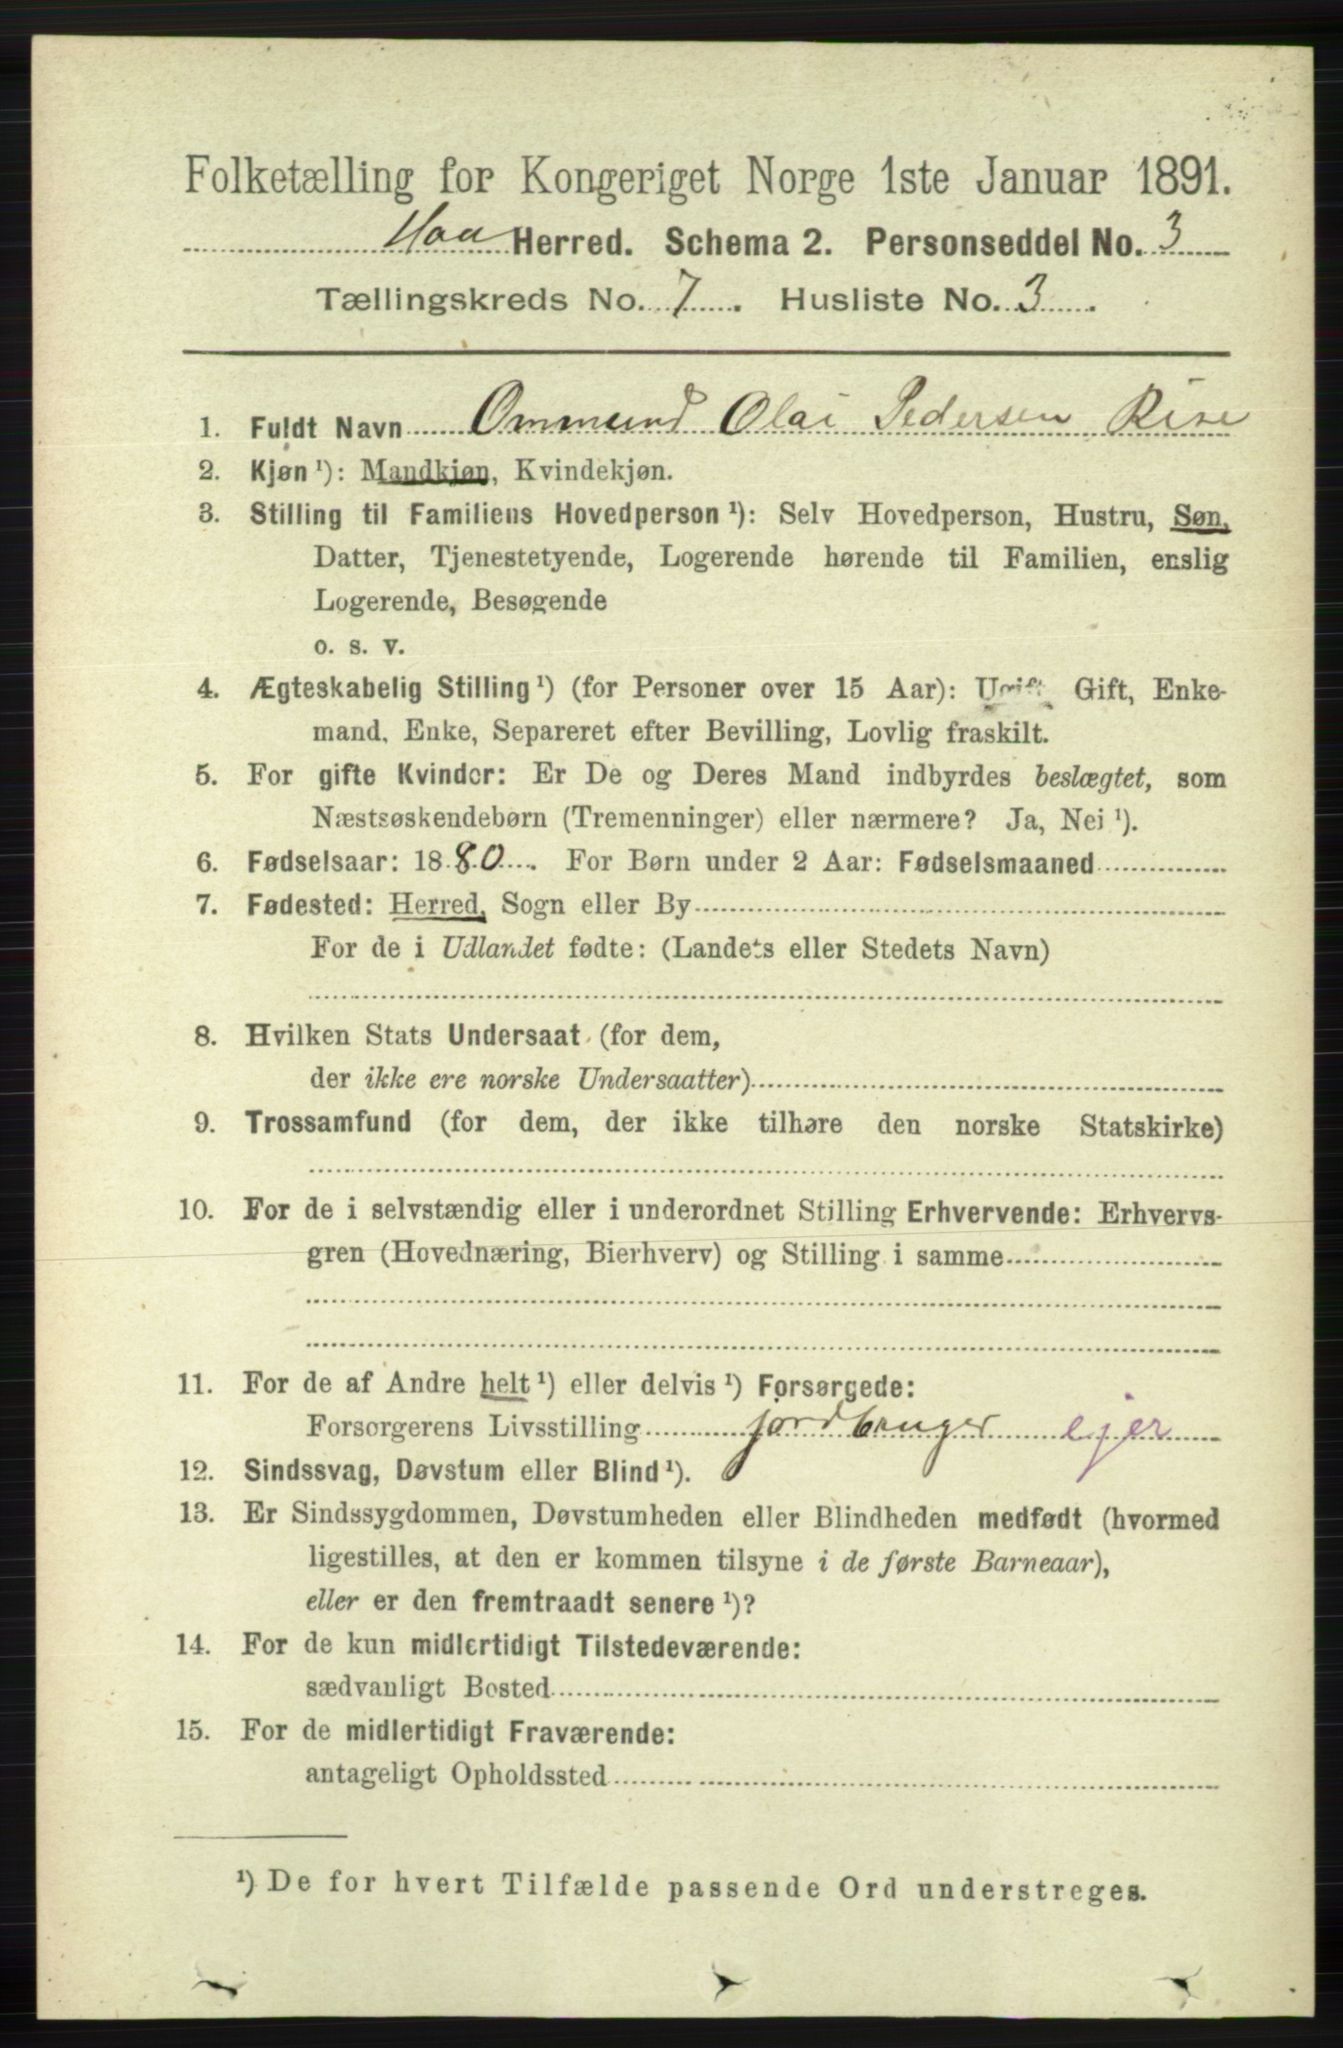 Folketælling for Kongeriget Norge 1ste Januar 1891.
Haa Herred. Schema 2. Personseddel No. 3
Tællingskreds No. 7. Husliste No. 3.
1. Fuldt Navn Ommund Olai Pedersen Rise
2. Kjøn ¹): Mandkjøn, Kvindekjøn.
3. Stilling til Familiens Hovedperson ¹): Selv Hovedperson, Hustru, Søn,
Datter, Tjenestetyende, Logerende hørende til Familien, enslig
Logerende, Besøgende
o. s. v.
4. Ægteskabelig Stilling ¹) (for Personer over 15 Aar): Ugift Gift, Enke-
mand, Enke, Separeret efter Bevilling, Lovlig fraskilt.
5. For gifte Kvinder: Er De og Deres Mand indbyrdes beslægtet, som
Næstsøskendebørn (Tremenninger) eller nærmere? Ja, Nei ¹).
6. Fødselsaar: 1880. For Børn under 2 Aar: Fødselsmaaned
7. Fødested: Herred, Sogn eller By
For de i Udlandet fødte: (Landets eller Stedets Navn)
8. Hvilken Stats Undersaat (for dem,
der ikke ere norske Undersaatter)
9. Trossamfund (for dem, der ikke tilhøre den norske Statskirke)
10. For de i selvstændig eller i underordnet Stilling Erhvervende: Erhvervs-
gren (Hovednæring, Bierhverv) og Stilling i samme
11. For de af Andre helt ¹) eller delvis ¹) Forsørgede:
Forsorgerens Livsstilling jordbruger ejer
12. Sindssvag, Døvstum eller Blind ¹).
13. Er Sindssygdommen, Døvstumheden eller Blindheden medfødt (hvormed
ligestilles, at den er kommen tilsyne i de første Barneaar),
eller er den fremtraadt senere ¹)?
14. For de kun midlertidigt Tilstedeværende:
sædvanligt Bosted
15. For de midlertidigt Fraværende:
antageligt Opholdssted
¹) De for hvert Tilfælde passende Ord understreges.